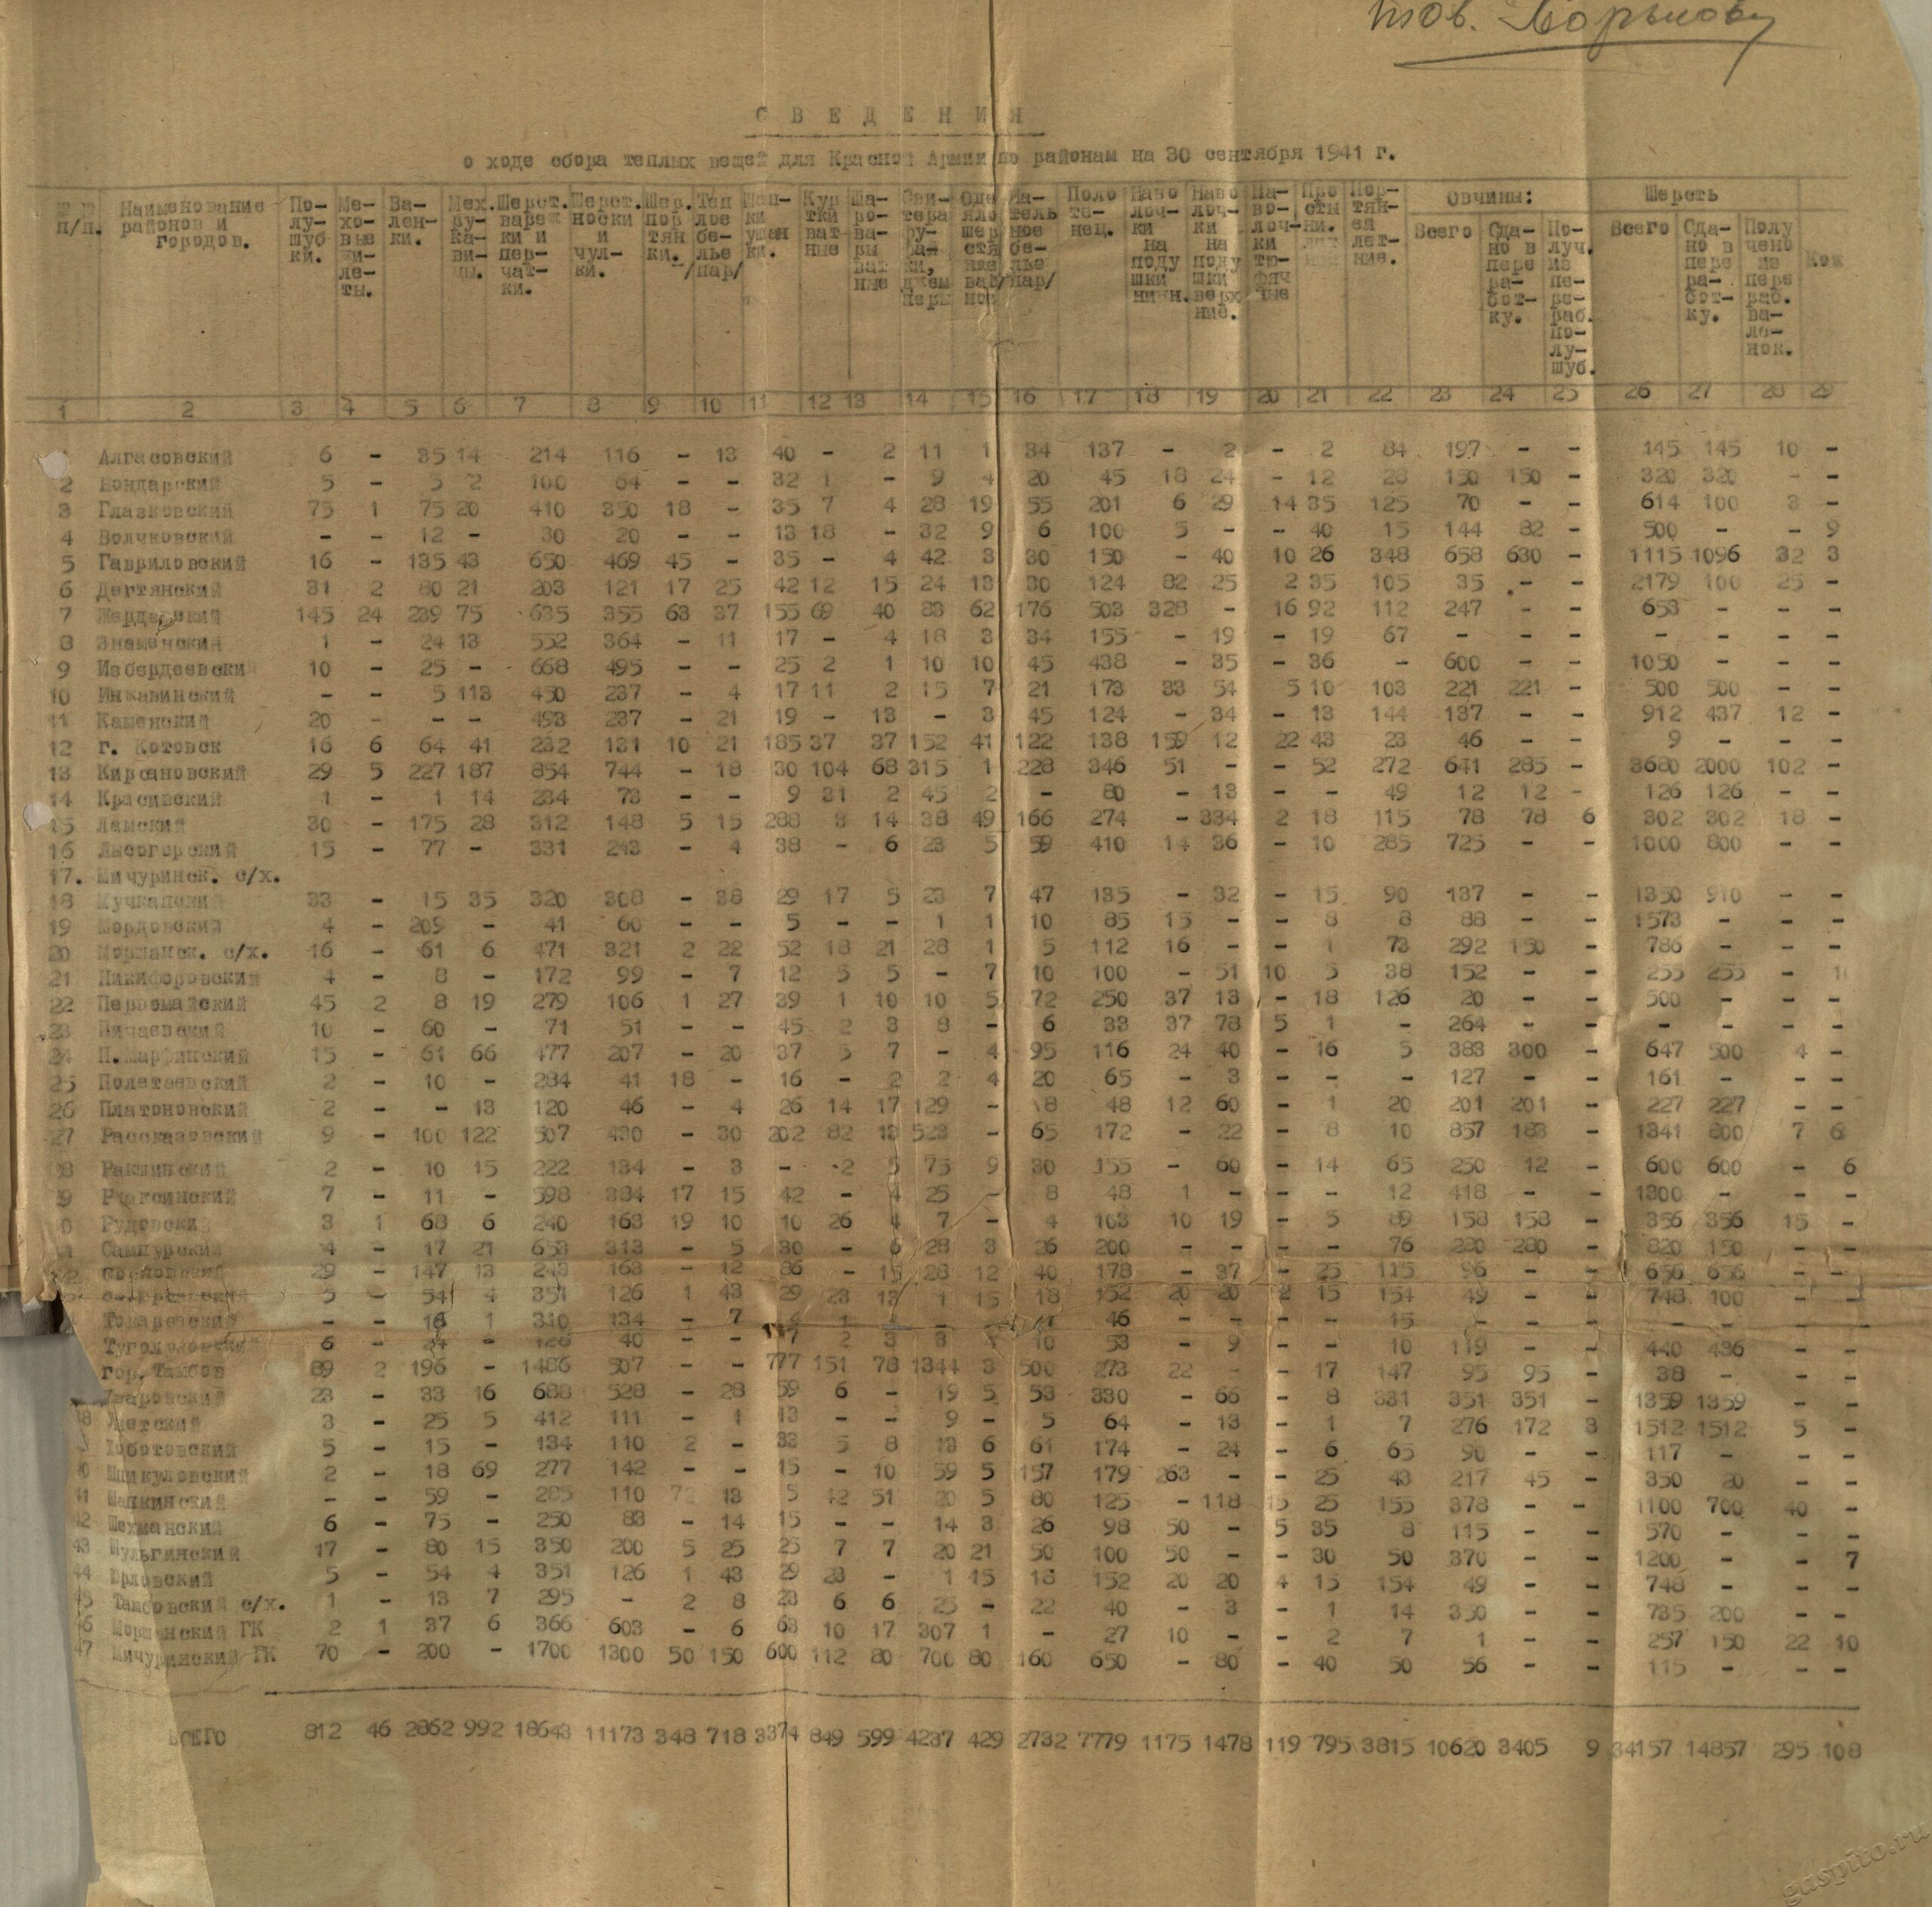 тов.
СВЕДЕНИЯ
о ходе сбора теплых вещей для Красной Армии по районам на 30 сентября 1941 г.
№№ п/п. Наименование районов и городов. По-лу-шуб-ки. Ме-хо-вые жи-ле-ты. Ва-лен-ки. Мех. ру-ка-ви-цы. Шерст. вареж ки и пер-чат-ки. Шерст. носки и чул-ки. Шер. пор тян ки. Теп лое бе-лье /пар/ Шап-ки ушан ки. Кур тки ват ные Ша-ро-ва-ры ват ные Сви-тера фу-фай ки, джем перы Оде яло шер стя ное ват/ ное На-тель ное бе-лье /пар/ Поло те-нец. Наво лоч-ки на поду шки нижн. Наво лоч-ки на поду шки верх ние. На-во-лоч-ки тю-фяч ные Про сты ни. Пор-тян-ей лет-ние. Овчины: Всего Сда-но в пере ра-бот-ку. По-луч. из пе-ре-раб. по-лу-шуб. Шерсть Всего Сда-но в пере ра-бот-ку. Полу чено из пере раб. ва-ле-нок. Кож
1 2 3 4 5 6 7 8 9 10 11 12 13 14 15 16 17 18 19 20 21 22 23 24 25 26 27 28 29
Алгасовский 6 - 35 14 214 116 - 13 40 - 2 11 1 34 137 - 2 - 2 84 197 - - 145 145 10 -
2 Бондарский 5 - 5 2 100 64 - - 32 1 - 9 4 20 45 18 24 - 12 28 150 150 - 320 320 - -
3 Глазковский 75 1 75 20 410 350 18 - 35 7 4 28 19 55 201 6 29 14 35 125 70 - - 614 100 3 -
4 Волчковский - - 12 - 30 20 - - 13 18 - 32 9 6 100 5 - - 40 15 144 82 - 500 - - 9
5 Гавриловский 16 - 135 43 650 469 45 - 35 - 4 42 3 30 150 - 40 10 26 348 658 630 - 1115 1096 32 3
6 Дегтянский 31 2 80 21 203 121 17 25 42 12 15 24 13 30 124 82 25 2 35 105 35 - - 2179 100 25 -
7 Жердевский 145 24 239 75 635 355 63 37 155 69 40 83 62 176 503 328 - 16 92 112 247 - - 653 - - -
8 Знаменский 1 - 24 13 552 364 - 11 17 - 4 18 3 34 155 - 19 - 19 67 - - - - - - -
9 Избердеевски 10 - 25 - 668 495 - - 25 2 1 10 10 45 438 - 35 - 36 - 600 - - 1050 - - -
10 Инжавинский - - 5 113 450 237 - 4 17 11 2 15 7 21 173 33 54 5 10 103 221 221 - 500 500 - -
11 Каменский 20 - - - 493 237 - 21 19 - 13 - 3 45 124 - 34 - 13 144 137 - - 912 437 12 -
12 г. Котовск 16 6 64 41 232 131 10 21 185 37 37 152 41 122 138 159 12 22 43 23 46 - - 9 - - -
13 Кирсановский 29 5 227 187 854 744 - 18 30 104 68 315 1 228 346 51 - - 52 272 641 285 - 3680 2000 102 -
14 Красивский 1 - 1 14 234 73 - - 9 31 2 45 2 - 80 - 13 - - 49 12 12 - 126 126 - -
15 Ламский 30 - 175 28 312 148 5 15 288 3 14 38 49 166 274 - 334 2 18 115 78 78 6 302 302 18 -
16 Лысогорский 15 - 77 - 331 243 - 4 38 - 6 23 5 59 410 14 36 - 10 285 725 - - 1000 800 - -
17. Мичуринск. с/х.
18 Мучкапский 33 - 15 35 320 308 - 38 29 17 5 23 7 47 135 - 32 - 15 90 137 - - 1350 910 - -
19 Мордовский 4 - 209 - 41 60 - - 5 - - 1 1 10 85 15 - - 8 8 88 - - 1573 - - -
20 Моршанск. с/х. 16 - 61 6 471 321 2 22 52 18 21 28 1 5 112 16 - - 1 73 292 150 - 786 - - -
21 Никифоровский 4 - 8 - 172 99 - 7 12 5 5 - 7 10 100 - 51 10 5 38 152 - - 255 255 -
22 Первомайский 45 2 8 19 279 106 1 27 39 1 10 10 5 72 250 37 13 - 18 126 20 - - 500 - - -
23 Пичаевский 10 - 60 - 71 51 - - 45 2 3 8 - 6 33 37 78 5 1 - 264 - - - - - -
24 П.Марфинский 15 - 61 66 477 207 - 20 37 5 7 - 4 95 116 24 40 - 16 5 383 300 - 647 500 4 -
25 Полетаевский 2 - 10 - 284 41 18 - 16 - 2 2 4 20 65 - 3 - - - 127 - - 161 - - -
26 Платоновский 2 - - 13 120 46 - 4 26 14 17 129 - 8 48 12 60 - 1 20 201 201 - 227 227 - -
27 Рассказовский 9 - 100 122 507 430 - 30 202 82 13 523 - 65 172 - 22 - 8 10 857 183 - 1341 800 7 6
8 Ракшинский 2 - 10 15 222 134 - 3 - 2 5 75 9 30 155 - 60 - 14 65 250 12 - 600 600 - 6
9 Ржаксинский 7 - 11 - 598 384 17 15 42 - 4 25 - 8 48 1 - - - 12 418 - - 1300 - - -
0 Рудовский 3 1 68 6 240 163 19 10 10 26 4 7 - 4 103 10 19 - 5 89 158 158 - 356 356 15 -
Сампурский 4 - 17 21 653 313 - 5 30 - 6 28 3 26 200 - - - - 76 280 280 - 820 150 - -
Сосновский 29 - 147 13 243 163 - 12 86 - 15 28 12 40 178 - 37 - 25 115 96 - - 656 656 - -
5 - 54 4 351 126 1 43 29 23 13 1 15 18 152 20 20 2 15 154 49 - - 748 100 - -
Токаревский - - 16 1 310 134 - 7 46 - - - - 15 - - - - - - -
Туголуковский 6 - 40 - - 2 3 3 10 53 - 9 - - 10 119 - - 440 436 - -
гор. Тамбов 89 2 196 - 1486 507 - - 777 151 78 1344 3 500 273 22 - - 17 147 95 95 - 38 - - -
Уваровский 23 - 33 16 688 528 - 28 59 6 - 19 5 53 330 - 66 - 8 331 351 351 - 1359 1359 - -
8 Уметский 3 - 25 5 412 111 - 1 13 - - 9 - 5 64 - 13 - 1 7 276 172 3 1512 1512 5 -
Хоботовский 5 - 15 - 134 110 2 - 33 5 8 13 6 61 174 - 24 - 6 65 90 - - 117 - - -
40 Шпикуловский 2 - 18 69 277 142 - - 15 - 10 59 5 157 179 263 - - 25 43 217 45 - 350 20 - -
41 Шапкинский - - 59 - 285 110 72 13 5 42 51 20 5 80 125 - 118 15 25 155 378 - - 1100 700 40 -
42 Шехманский 6 - 75 - 250 83 - 14 15 - - 14 3 26 98 50 - 5 35 8 115 - - 570 - - -
43 Шульгинский 17 - 80 15 350 200 5 25 25 7 7 20 21 50 100 50 - - 30 50 370 - - 1200 - - 7
44 Юрловский 5 - 54 4 351 126 1 43 29 23 - 1 15 18 152 20 20 4 15 154 49 - - 748 - - -
45 Тамбовский с/х. 1 - 13 7 295 - 2 8 23 6 6 25 - 22 40 - 3 - 1 14 350 - - 735 200 - -
46 Моршанский ГК 2 1 37 6 366 603 - 6 63 10 17 307 1 - 27 10 - - 2 7 1 - - 257 150 22 10
47 Мичуринский ГК 70 - 200 - 1700 1300 50 150 600 112 80 700 80 160 650 - 80 - 40 50 56 - - 115 - - -
ВСЕГО 812 46 2862 992 18643 11173 348 718 3374 849 599 4237 429 2732 7779 1175 1478 119 795 3815 10620 3405 9 34157 14857 295 108
gaspito.ru